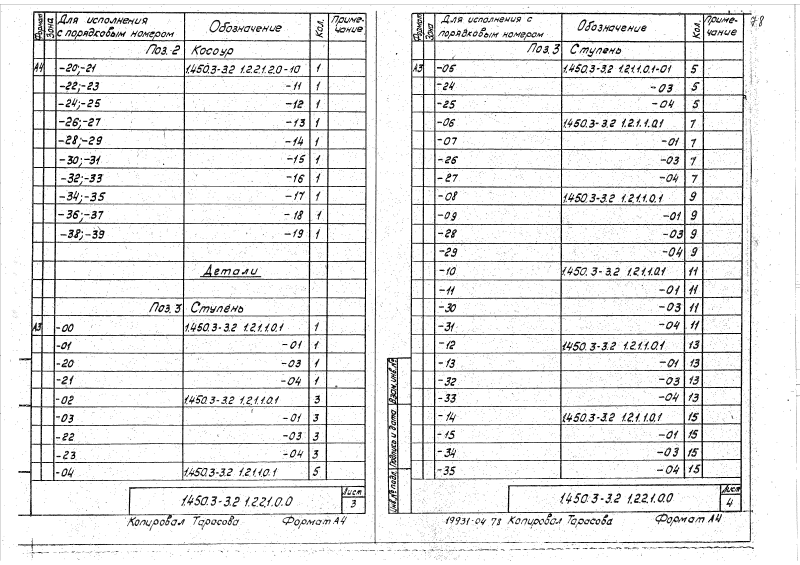 Формат Зона Для исполнения с порядковым номером Обозначение Кол. Примечание
Поз. 2 Косоур
А4 -20;-21 1.450.3-3.2 1.2.2.1.2.0-10 1
-22;-23 -11 1
-24;-25 -12 1
-26;-27 -13 1
-28;-29 -14 1
-30;-31 -15 1
-32;-33 -16 1
-34;-35 -17 1
-36;-37 -18 1
-38;-39 -19 1
Детали
Поз. 3 Ступень
А3 -00 1.450.3-3.2 1.2.1.1.0.1 1
-01 -01 1
-20 -03 1
-21 -04 1
-02 1.450.3-3.2 1.2.1.1.0.1 3
-03 -01 3
-22 -03 3
-23 -04 3
-04 1.450.3-3.2 1.2.1.1.0.1 5
1.450.3-3.2 1.2.2.1.0.0 Лист 3
Копировал Тарасова Формат А4
Формат Зона Для исполнения с порядковым номером Обозначение Кол. Примечание
Поз. 3 Ступень
А3 -05 1.450.3-3.2 1.2.1.1.0.1-01 5
-24 -03 5
-25 -04 5
-06 1.450.3-3.2 1.2.1.1.0.1 7
-07 -01 7
-26 -03 7
-27 -04 7
-08 1.450.3-3.2 1.2.1.1.0.1 9
-09 -01 9
-28 -03 9
-29 -04 9
-10 1.450.3-3.2 1.2.1.1.0.1 11
-11 -01 11
-30 -03 11
-31 -04 11
-12 1.450.3-3.2 1.2.1.1.0.1 13
-13 -01 13
-32 -03 13
-33 -04 13
-14 1.450.3-3.2 1.2.1.1.0.1 15
-15 -01 15
-34 -03 15
-35 -04 15
Инв.№ подл. Подпись и дата Взам.инв.№
1.450.3-3.2 1.2.2.1.0.0 Лист 4
19931-04 78 Копировал Тарасова Формат А4